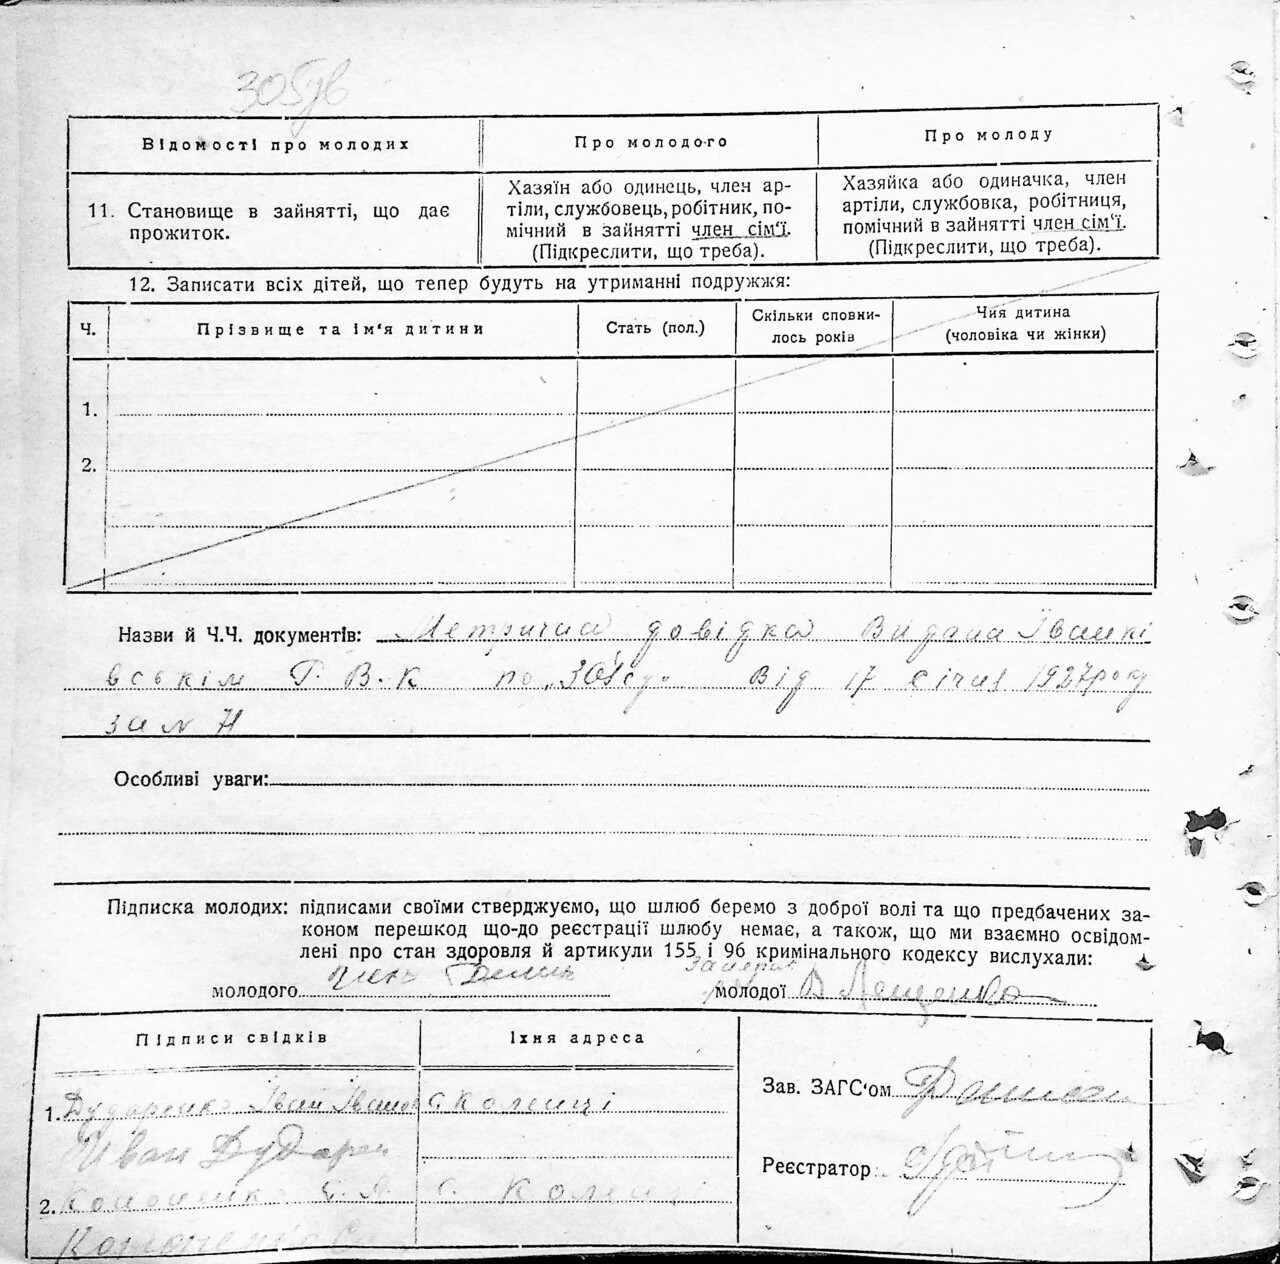 305зв
Відомості про молодих
Про молодого
Про молоду
11. Становище в зайнятті, що дає
прожиток.
Хазяїн або одинець, член ар-
тіли, службовець, робітник, по-
мічний в зайнятті член сім'ї.
(Підкреслити, що треба).
Хазяйка або одиначка, член
артіли, службовка, робітниця,
помічний в зайнятті член сім'ї.
(Підкреслити, що треба).
12. Записати всіх дітей, що тепер будуть на утриманні подружжя:
Ч.
Прізвище та ім'я дитини
Стать (пол.)
Скільки сповни-
лось років
Чия дитина
(чоловіка чи жінки)
1.
2.
Назви й Ч.Ч. документів: Метрична довідка Видана Іванкі
вськім Р. В. К по від 17 січня 1927 року
за №
Особливі уваги:
Підписка молодих: підписами своїми стверджуємо, що шлюб беремо з доброї волі та що предбачених за-
коном перешкод що-до реєстрації шлюбу немає, а також, що ми взаємно освідом-
лені про стан здоровля й артикули 155 і 96 кримінального кодексу вислухали:
молодого
молодої В Лещенко
Підписи свідків
Їхня адреса
1. Дударенко Іван Іванов
с. Коленці
Иван Дударен
2.
с. Коленці
Зав. ЗАГС'ом
Реєстратор